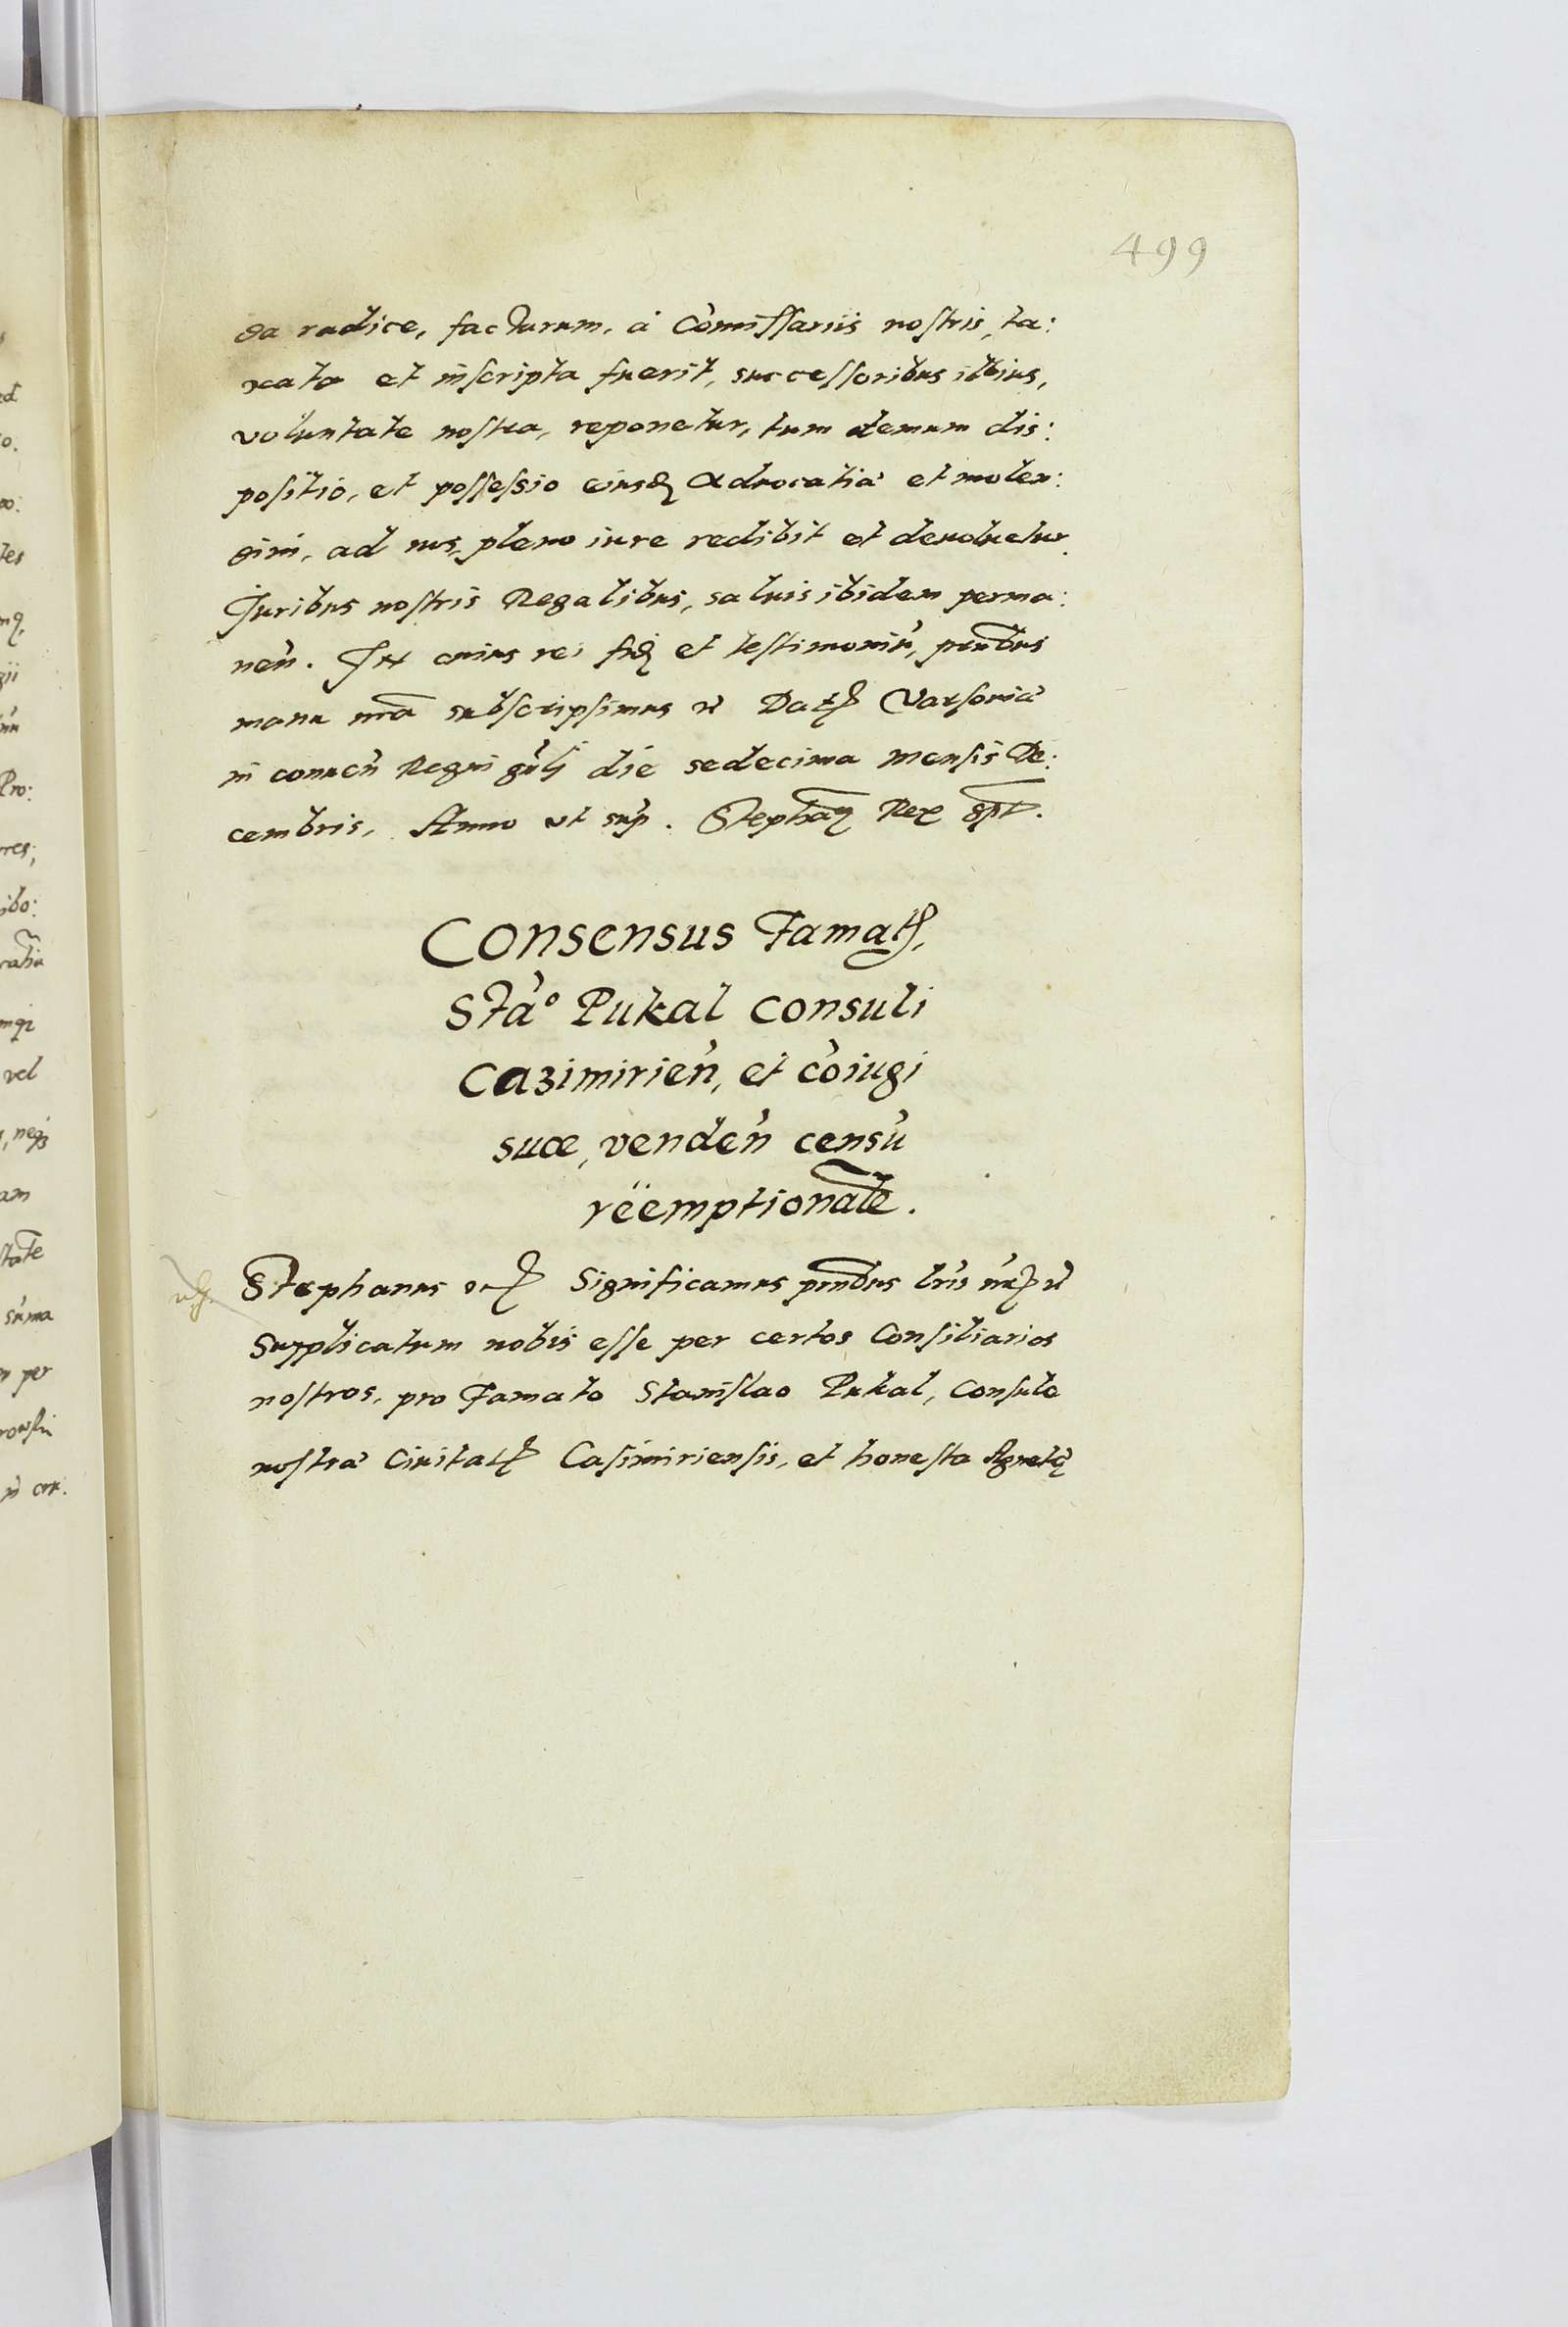 499
da radice, facturum, à Comissariis nostris, ta:
xata et inscripta fuerit, successoribus illius,
voluntate nostra, reponetur, tum demum dis:
positio, et possessio eiusd Advocatiae et molen:
dini, ad nos, pleno iure redibit et devoluetur.
Juribus nostris Regalibus, saluis ibidem perma:
nen̄. In cuius rei fid et testimoniū, pn̄tibus
manu nr̄a subscripsimus etc Dat Varsoviae
in conuen̄ Regni gn̄li die sedecima mensis De:
cembris, Anno ut sup. Stephanus Rex spt.
Consensus Famat,
Stao Pukal consuli
Cazimirien̄, et cōiugi
suae, venden̄ censū
rëemptionale.
Stephanus etc Significamus pn̄tibus lr̄is nr̄is etc
Supplicatum nobis esse per certos Consiliarios
nostros, pro Famato Stanislao Pukal, Consule
nostrae Ciuitat Casimiriensis, et honesta Agnete